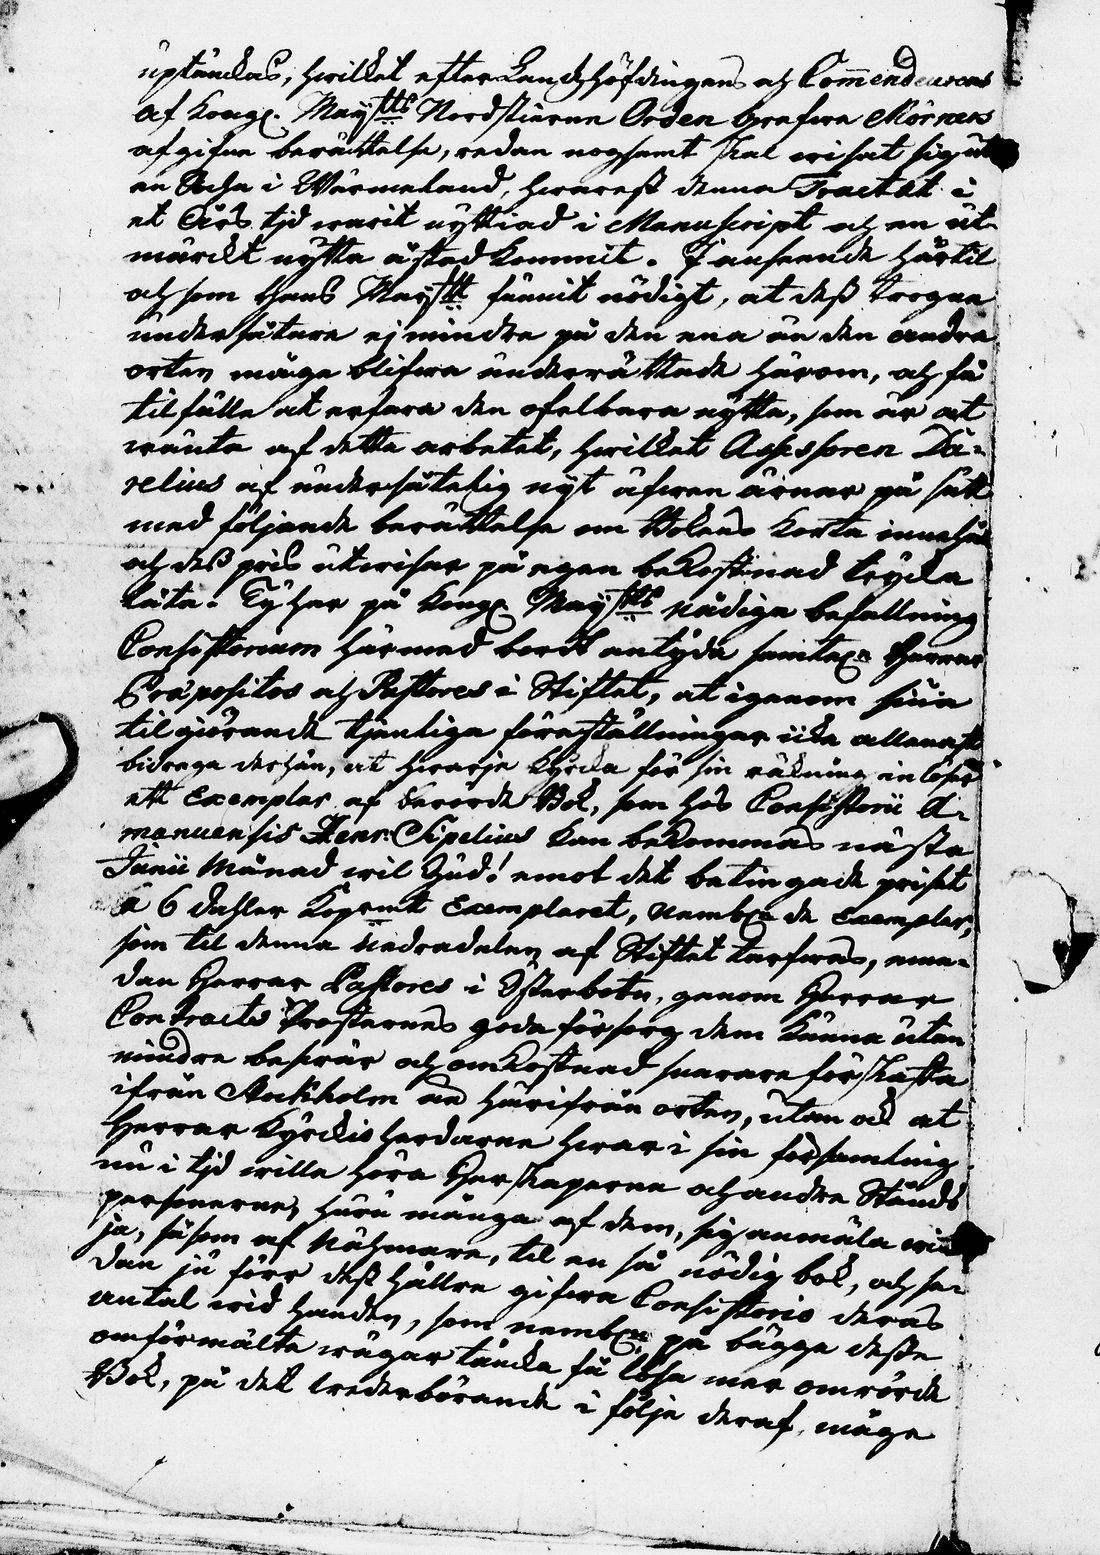 uptänckas, hwilket efter Landshöfdingens och Commendeurens
af Kongl. Maij:tts Nordstierne Orden Grefwe Mörners
afgifne berättelse, redan nogsamt skal wisat sig ut
en Socha i Wärmeland, hwarest denna Tractat i
et Års tjd warit nyttiad i Manuscript och en ut-
märckt nytta åstadkommit. I anseende härtil
och som Hans Maij:tt funnit nödigt, at dess trogne
undersåtare ej mindre på den ena än den andra
orten måge blifwa underrättade härom, och få
tilfälle at erfara den ofelbara nytta, som är at
wänta af detta arbetet, hwilket Assessoren Da-
relius af undersåtelig nyt äfwen ärnar på sätt
med följande berättelse om Bokens korta innehåll
och dess pris utwisar på egen bekostnad trycka
låta. Ty har på Kongl. Maij:tts nådiga befallning
Consistorium härmed bordt antyda samtel. Herrar
Præpositos och Pastores i Stiftet, at igenom sina
tilgiörande tjenliga föreställningar icke allenast
bidraga derhän, at hwarje Kyrcka för sin räkning inlöser
ett Exemplar af berörde Bok, som hos Consistorii A-
manuensis Henr. Sipelius kan bekommas nästa
Junii Månad wil Gud! emot det betingade priset
a 6 daler Kopr:mt Exemplaret, nembl. de Exemplar,
som til denna nedradelen af Stiftet tarfwas, eme-
dan Herrar Pastores i Österbotn, genom Herrar
Contracts Prosternes goda försorg dem kunna utan
mindre beswär och omkostnad snarare förskaffa
ifrån Stockholm än härifrån orten, utan ock at
Herrar Kyrckioherdarne hwar i sin församling
nu i tjd wille höra Herskaperne och andre Stånds
personer, huru månge af dem, sig anmäla wil-
ja, såsom af Nåhmare, til en så nödig bok, och se-
dan ju förr dess hällre gifwa Consistorio deras
antal wid handen, som nembl. på bägge desse
omförmälte wägar täncka få lösa mer omrörde
Bok, på det wederbörande i följe deraf, måge